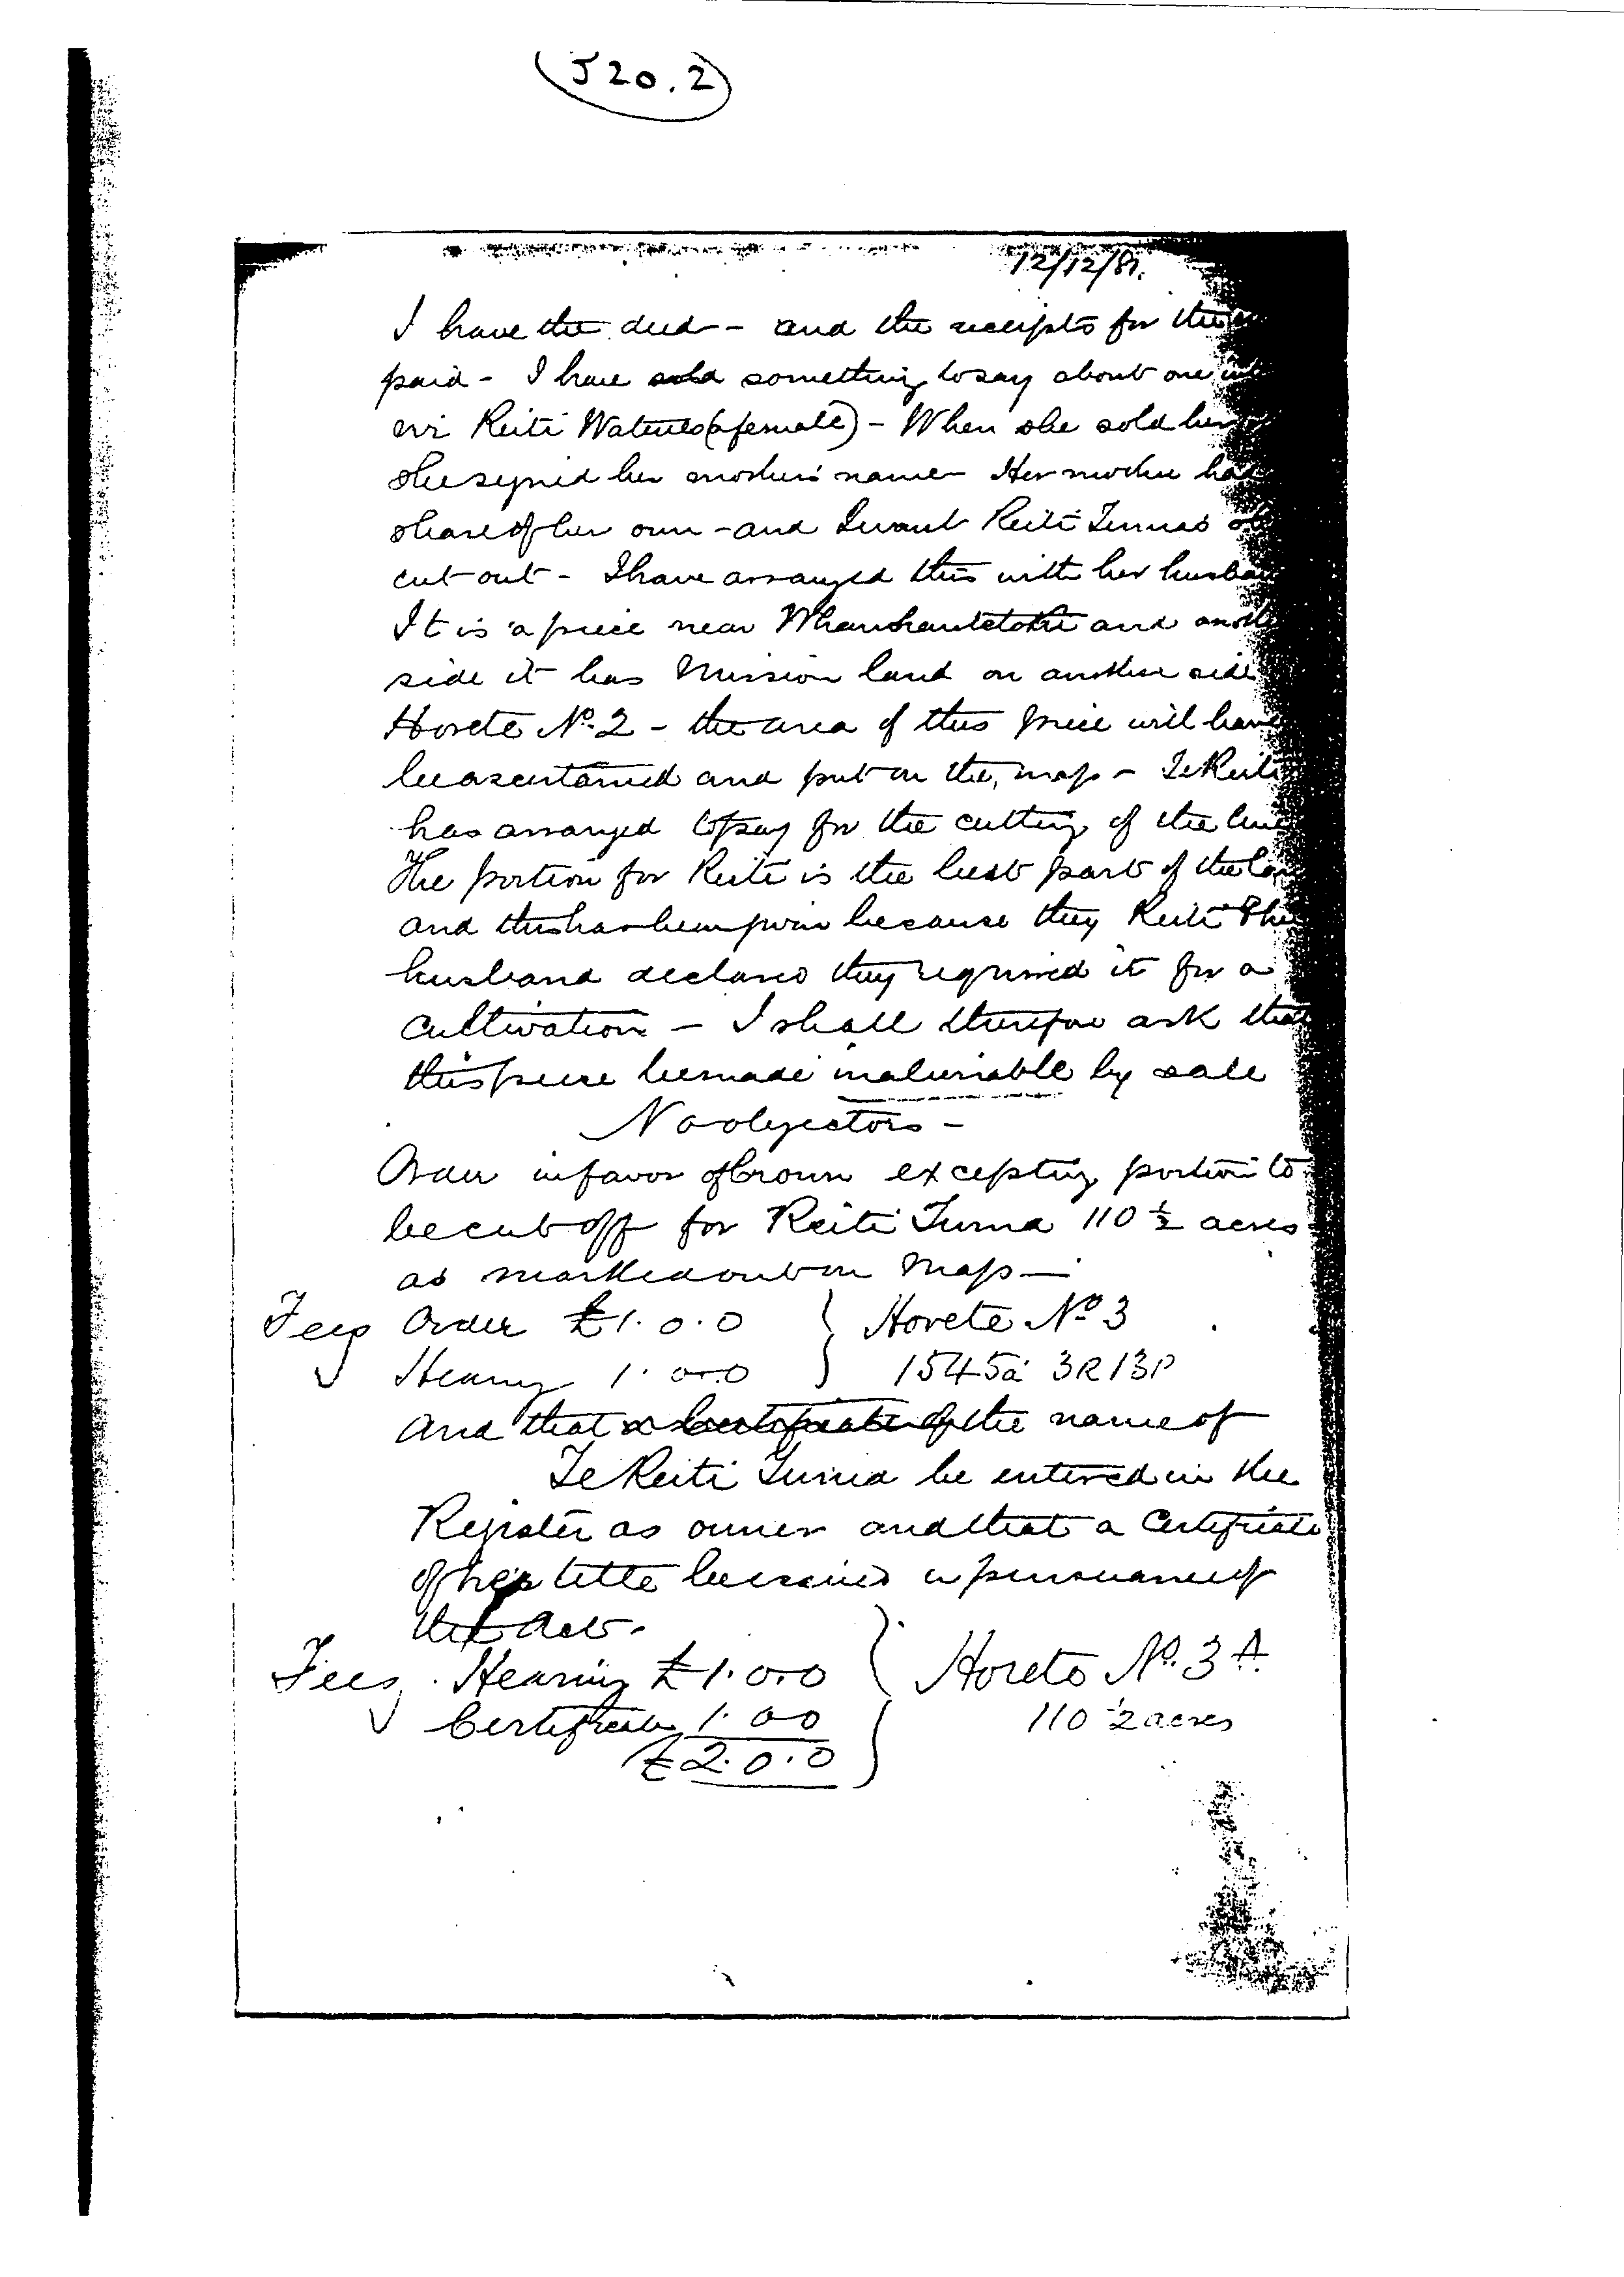 J20.2
12/12/81.
I have the deed - and the receipts for the
paid - I have sold something to say about one
viz Reiti Wateres (a female) - When she sold her
she signed her mother's name - Her mother had
share of her own - and I want Reiti Turuas
cut out - I have arranged this with her husband
It is a piece near and
side it has Mission land on another side
Horete No. 2 - the area of this piece will have
be ascertained and put on the map - Te Reiti
has arranged to pay for the cutting of the line
The portion for Reiti is the best part of the
and this has been given because they Reiti &
husband declared they required it for a
cultivation - I shall therefore ask that
this piece be made inalienable by sale
No objectors -
Order in favor of Crown excepting portion to
be cut off for Reiti Turua 110 ½ acres
as marked out on Map -
Fees Order £1.0.0 } Horete No 3
Hearing 1.0.0 } 1545a 3R 13P
and that a Certificate of the name of
Te Reiti Turua be entered in the
Register as owner and that a Certificate
of her title be issued in pursuance of
the Act -
Fees. Hearing £1.0.0 } Horete No. 3A
Certificate 1.0.0 110 ½ acres
£2.0.0